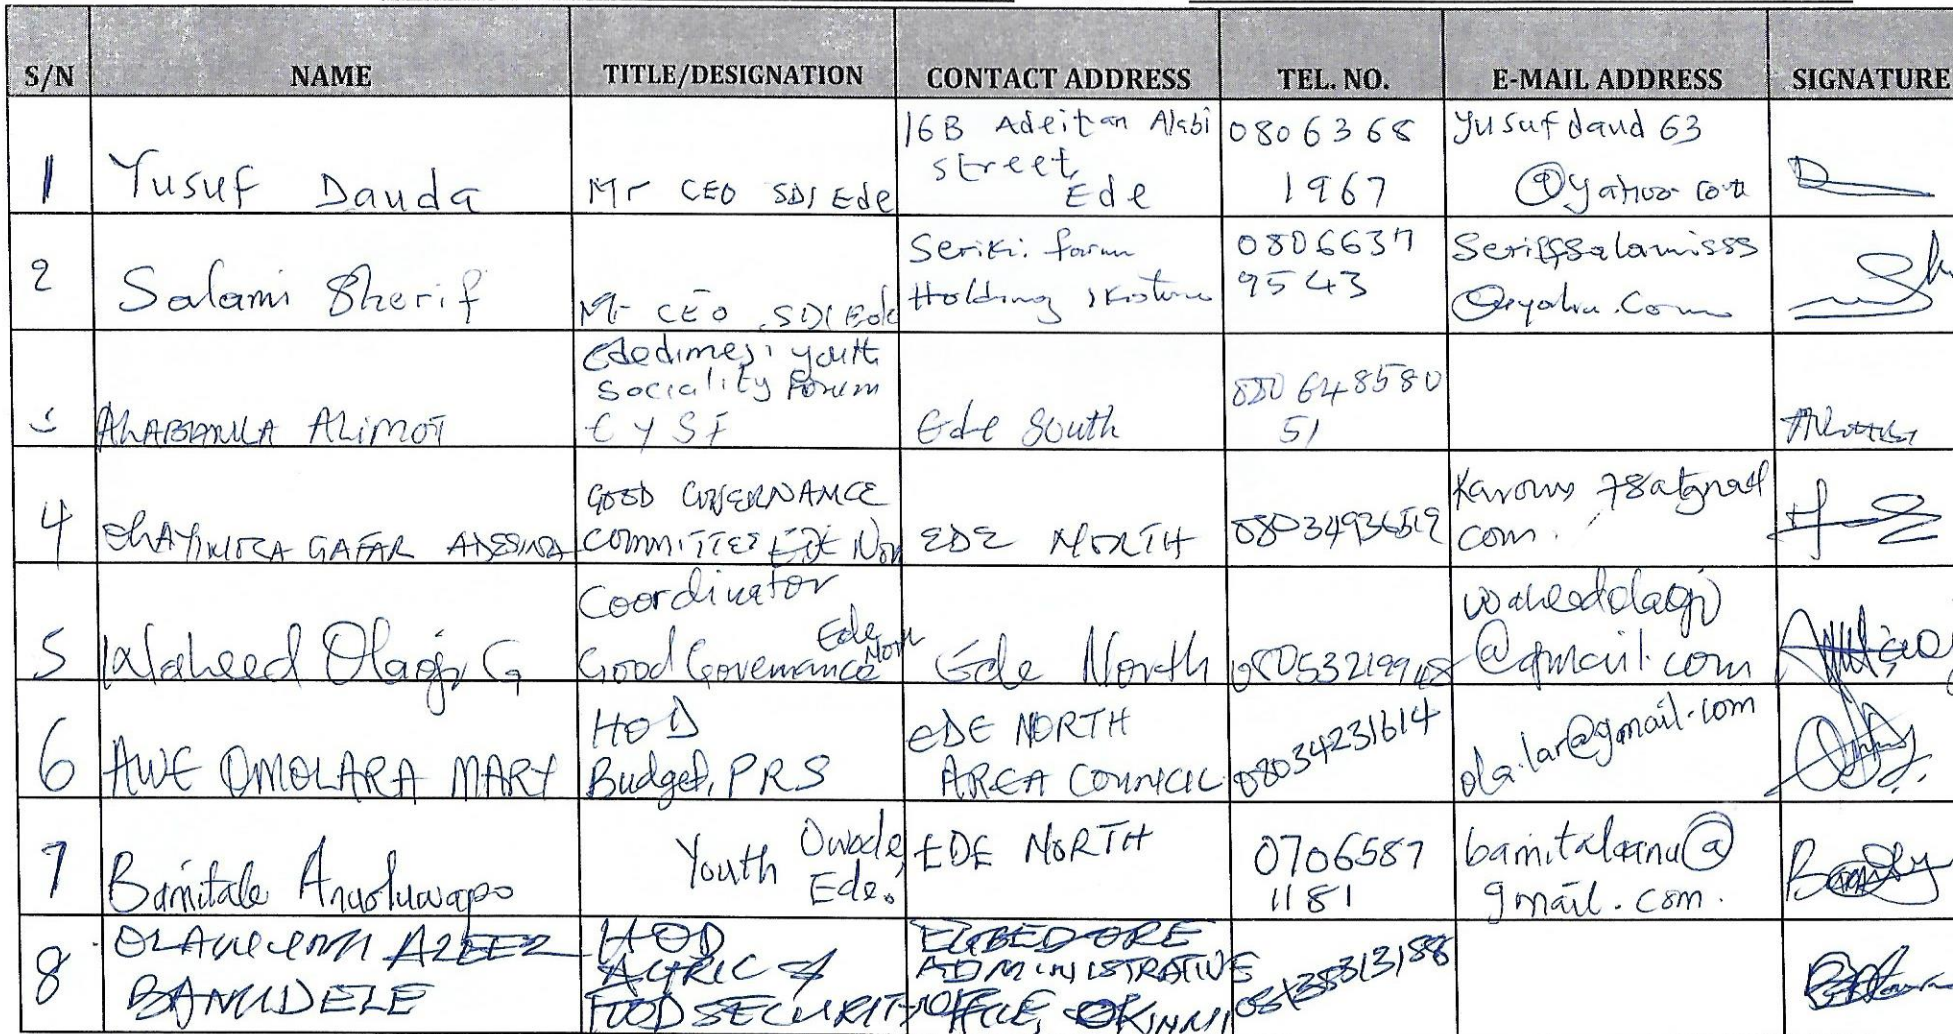 S/N NAME TITLE/DESIGNATION CONTACT ADDRESS TEL. NO. E-MAIL ADDRESS SIGNATURE
1 Yusuf Dauda
Mr CEO SDI Ede
16B Adeitan Alabi
street,
Ede
0806368
1967
yusufdaud63
@yahoo.com
2 Salami Sherif
Mr CEO SDI Ede
Seriki farm
Holding
0806637
9543
Seriffsalamisss
@yahu.com
ALIMOT
Ededimeji youth
Sociality Forum
EYSF
Ede South
080648580
51
4 GAFAR
GOOD GOVERNANCE
COMMITTEE EDE Nor
EDE NORTH
08034936519
com.
5 Waheed Olagji G
Coordinator
Good Governance Ede North
Ede North
08053219948
waheedolagji
@gmail.com
6 AWE OMOLARA MARY
HOD
Budget, PRS
EDE NORTH
AREA COUNCIL
08034231614
ola.lar@gmail.com
7 Bamitale Anuoluwapo
Youth Owode,
Ede.
EDE NORTH
0706587
1181
bamitaleanu@
gmail.com.
8 AZEEZ
BAMIDELE
HOD
AGRIC &
FOOD SECURITY
EGBEDORE
ADMINISTRATIVE
OFFICE, OKINNI
08138313188